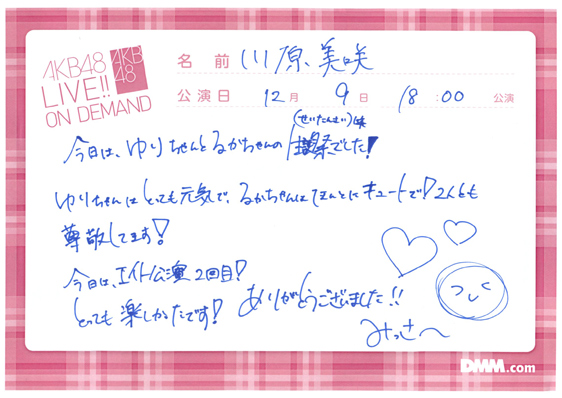 AKB48
LIVE!!
ON DEMAND
AKB
48
名前 川原美咲
公演日 12月 9日 18:00 公演
(せいたんさい)
今日は、ゆりちゃんとるかちゃんの生誕祭でした!
ゆりちゃんはとっても元気で、るかちゃんはほんとにキュートで!2人とも
尊敬してます!
今日は、エイト公演2回目!
とっても楽しかったです! ありがとうございました!!
みっさー
DMM.com